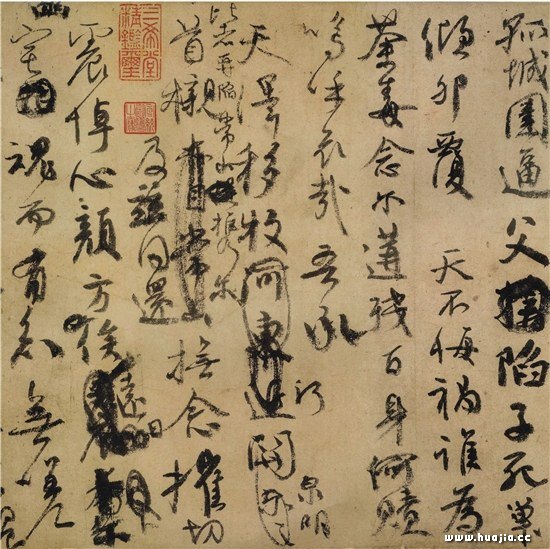 孤城圍逼父陷子死巢
傾卵覆 天不悔禍誰為
荼毒念爾遘殘百身何贖
嗚乎哀哉吾承
天澤移牧河東近
泉明
比者再陷常山攜爾
首櫬亦自常山撫念摧切
及茲同還
震悼心顏方俟遠日
宅魂而有知無嗟
三希堂精鑑璽
www.huajia.cc